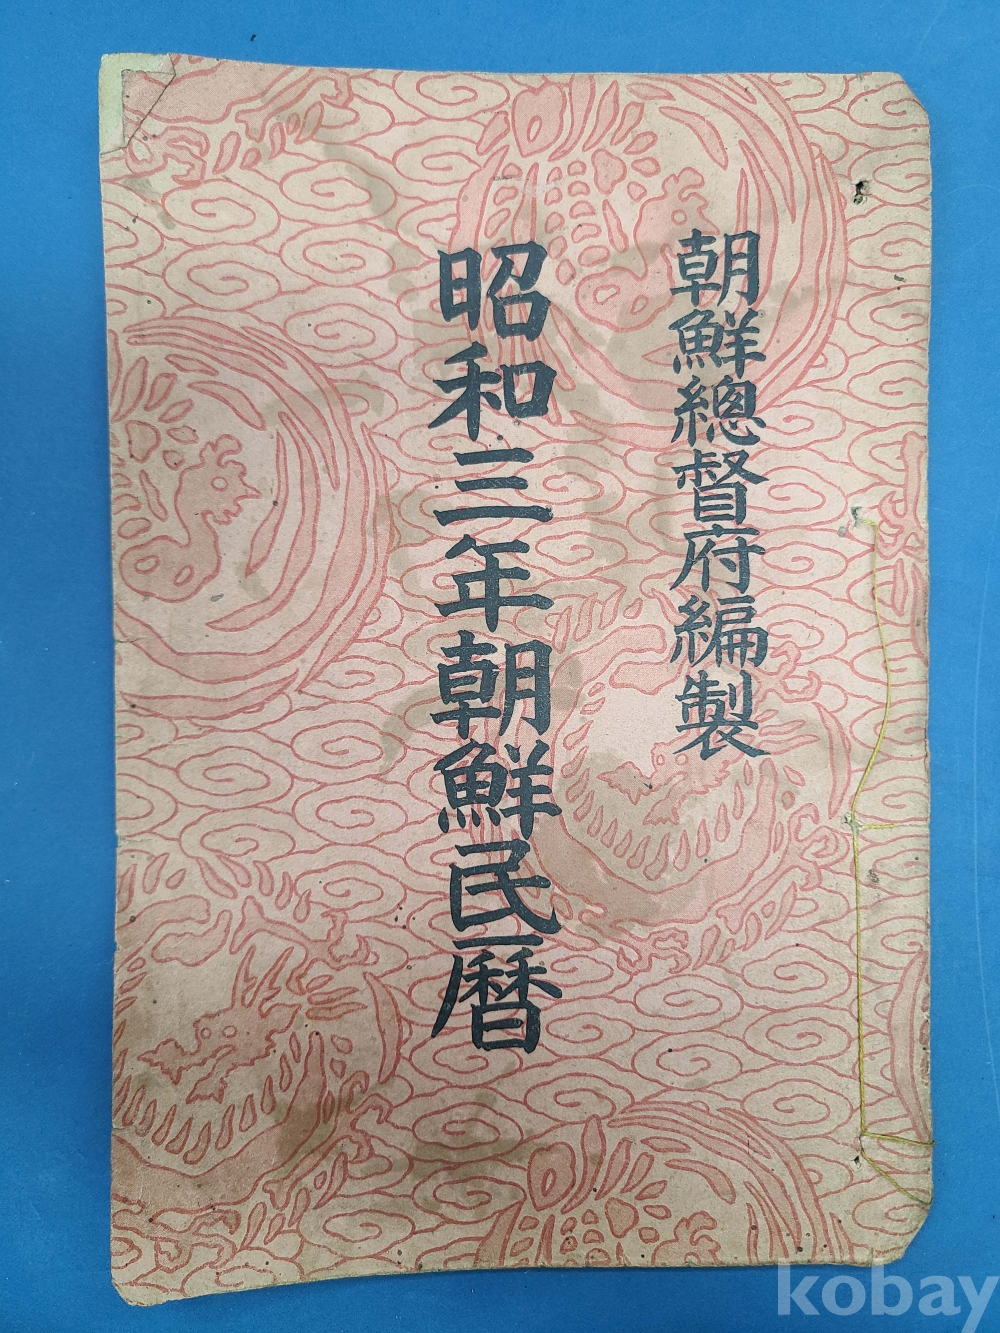 朝鮮總督府編製
昭和三年朝鮮民曆
kobay